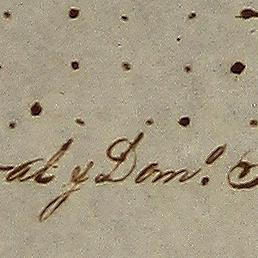 -al y Dom.º